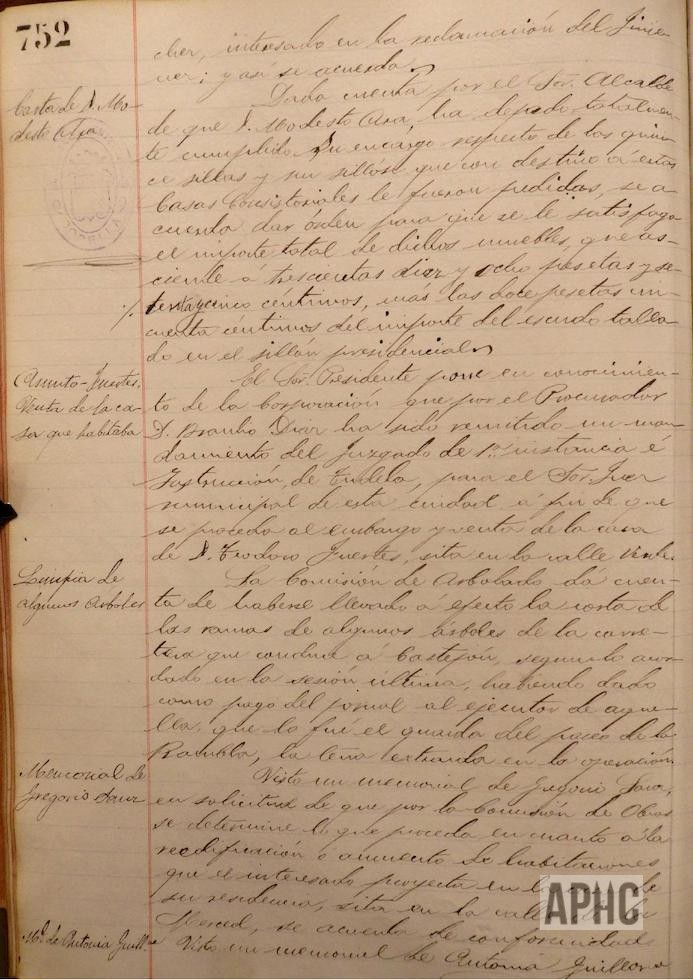 752
cher, interesado en la reclamación del Jinie-
ner; y así se acuerda.
Carta de D. Mo-
desto Axa.
Dada cuenta por el Sor. Alcalde
de que D. Modesto Axa, ha dejado totalmen-
te cumplido su encargo respecto de las quin-
ce sillas y un sillón que con destino á estas
Casas Consistoriales le fueron pedidas, se a-
cuerda dar órden para que se le satisfaga
el importe total de dichos muebles, que as-
ciende á trescientas diez y ocho pesetas y se-
tenta y cinco céntimos, más las doce pesetas cin-
cuenta céntimos del importe del escudo talla-
do en el sillón presidencial.
Asunto-Fuertes.
Venta de la ca-
sa que habitaba
El Sor. Presidente pone en conocimien-
to de la Corporación que por el Procurador
D. Braulio Diaz ha sido remitido un man-
damiento del Juzgado de 1ª instancia é
Instrucción de Tudela, para el Sor. Juez
municipal de esta ciudad á fin de que
se proceda al embargo y venta de la casa
de D. Teodoro Fuertes, sita en la calle Verde.
Limpia de
algunos árboles
La Comisión de Arbolado dá cuen-
ta de haberse llevado á efecto la corta de
las ramas de algunos árboles de la carre-
tera que conduce á Castejón, segun lo acor-
dado en la sesión última, habiendo dado
como pago del jornal al ejecutor de aque-
lla, que lo fué el guarda del paseo de la
Rambla, la leña extraida en la operación
Memorial de
Gregorio Sanz
Visto un memorial de Gregorio Sanz,
en solicitud de que por la Comisión de Obras
se determine lo que proceda en cuanto á la
reedificación ó aumento de habitaciones
que el interesado proyecta en la casa de
su residencia, sita en la calle de la
Merced, se acuerda de conformidad
Ml. de Antonia Guill
Visto un memorial de Antonia Guillen
APHC